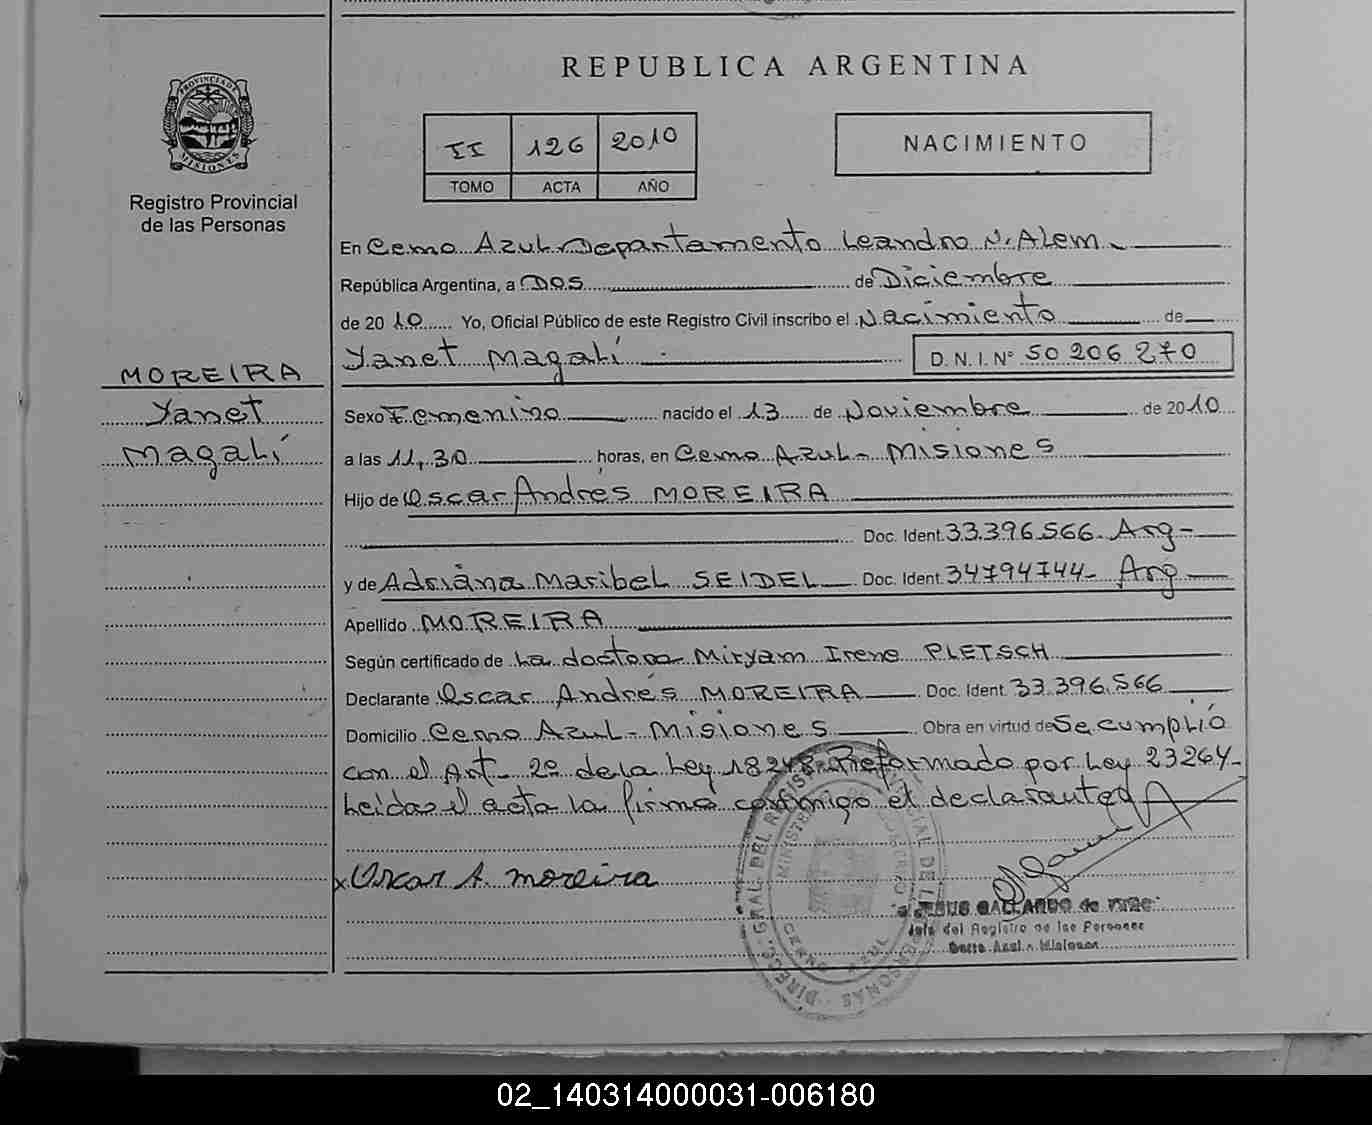 REPUBLICA ARGENTINA
PROVINCIA DE MISIONES
Registro Provincial
de las Personas
II 126 2010
TOMO ACTA AÑO
NACIMIENTO
En Cerro Azul Departamento Leandro N. Alem
República Argentina, a Dos de Diciembre
de 2010 Yo, Oficial Público de este Registro Civil inscribo el Nacimiento de
Yanet Magalí D.N.I.Nº 50 206 270
MOREIRA
Yanet
Magalí
Sexo Femenino nacido el 13 de Noviembre de 2010
a las 11,30 horas, en Cerro Azul - Misiones
Hijo de Oscar Andrés MOREIRA
Doc. Ident. 33.396.566- Arg-
y de Adriana Maribel SEIDEL Doc. Ident. 34794744- Arg
Apellido MOREIRA
Según certificado de La doctora Miryam Irene PLETSCH
Declarante Oscar Andrés MOREIRA Doc. Ident. 33.396.566
Domicilio Cerro Azul - Misiones Obra en virtud de Se cumplió
con el Art- 2º de la Ley 18248 Reformado por Ley 23264-
Leida el acta la firma conmigo el declarante
x Oscar A. Moreira
JESUS GALLARDO de
Jefe del Registro de las Personas
Cerro Azul - Misiones
02_140314000031-006180